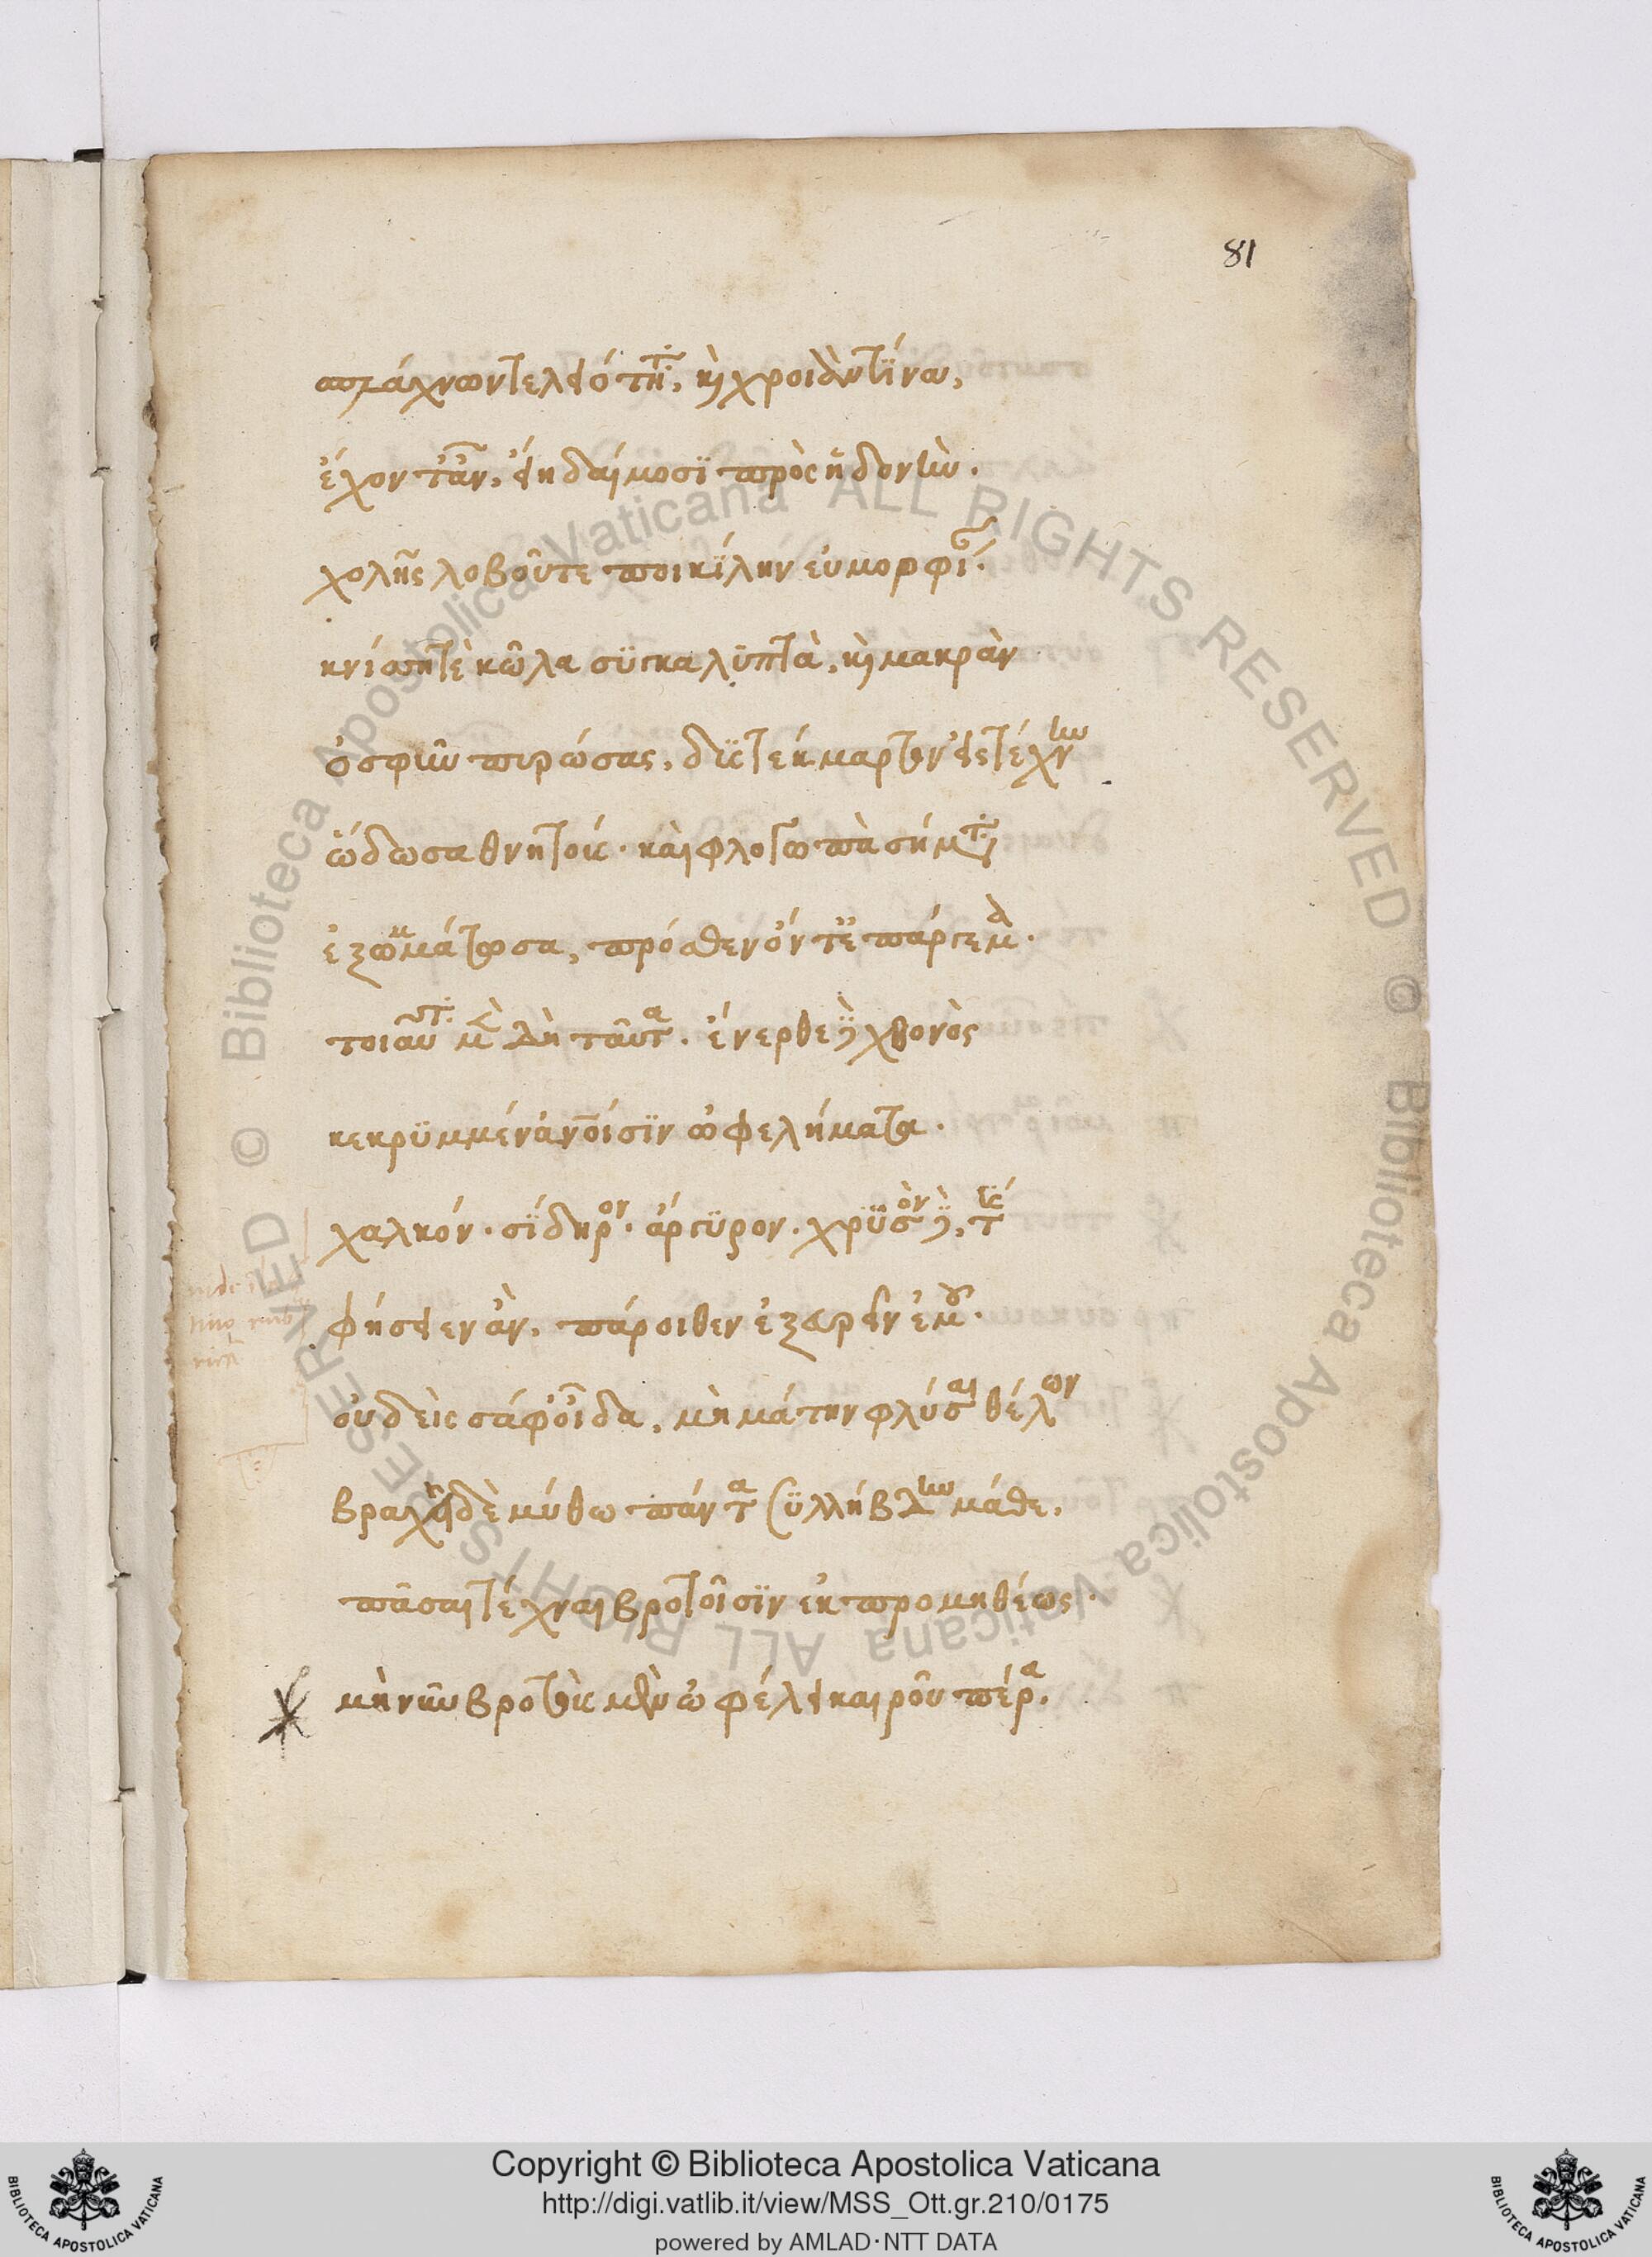 81
σπλάχνων τε λειότητα, καὶ χροιὰν τίνα,
ἔχοντ' ἂν, εἴη δαίμοσϊ πρὸς ἡδονὴν.
χολῆς λοβοῦτε ποικίλην εὐμορφίαν.
κνίσῃ τὲ κῶλα συγκαλυπτὰ, καὶ μακρὰν
ὀσφῦν πυρώσας, δυστέκμαρτον εἰς τέχνην
ὥδωσα θνητούς. καὶ φλογωπὰ σήματα
ἐξωμμάτωσα, πρόσθεν ὄντ' ἐπάργεμα.
τοιαῦτα μὲν δὴ ταῦτα. ἔνερθε δὲ χθονὸς
κεκρυμμέν' ἀνοίσϊν ὠφελήματα.
χαλκόν. σίδηρον. ἄργυρον. χρυσὸν δὲ, τίς
φήσειεν ἂν, πάροιθεν ἐξευρεῖν ἐμοῦ.
οὐδεὶς σάφ' οἶδα, μὴ μάτην φλύσαι θέλων
βραχεῖ δὲ μύθω πάντα συλλήβδην μάθε,
πᾶσαι τέχναι βροτοῖσϊν ἐκ προμηθέως.
μὴ νῦν βροτοὺς μὲν ὠφέλει καιροῦ πέρα,
Copyright © Biblioteca Apostolica Vaticana
http://digi.vatlib.it/view/MSS_Ott.gr.210/0175
powered by AMLAD·NTT DATA
© Biblioteca Apostolica Vaticana ALL RIGHTS RESERVED
© Biblioteca Apostolica Vaticana ALL RIGHTS RESERVED
BIBLIOTECA APOSTOLICA VATICANA
BIBLIOTECA APOSTOLICA VATICANA